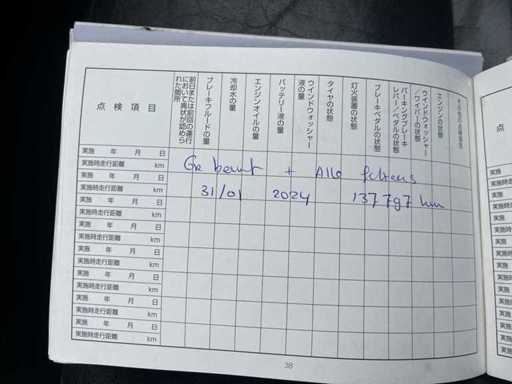 点検項目
前日または前回の運行において異状が認められた箇所
ブレーキフルードの量
冷却水の量
エンジンオイルの量
バッテリー液の量
ウインドウォッシャー液の量
タイヤの状態
灯火装置の状態
ブレーキペダルの状態
パーキングブレーキレバー／ペダルの状態
ウインドウォッシャー／ワイパーの状態
エンジンの状態
実施 年 月 日
実施時走行距離 km
+ Alle
実施 年 月 日
31/01 2024 137 787 km
実施時走行距離 km
実施 年 月 日
実施時走行距離 km
実施 年 月 日
実施時走行距離 km
実施 年 月 日
実施時走行距離 km
実施 年 月 日
実施時走行距離 km
実施 年 月 日
実施時走行距離 km
実施 年 月 日
実施時走行距離 km
38
点
実施
実施時
実施
実施時
実施
実施時
実施
実施時
実施
実施時
実施
実施時
実施
実施時
実施
実施時